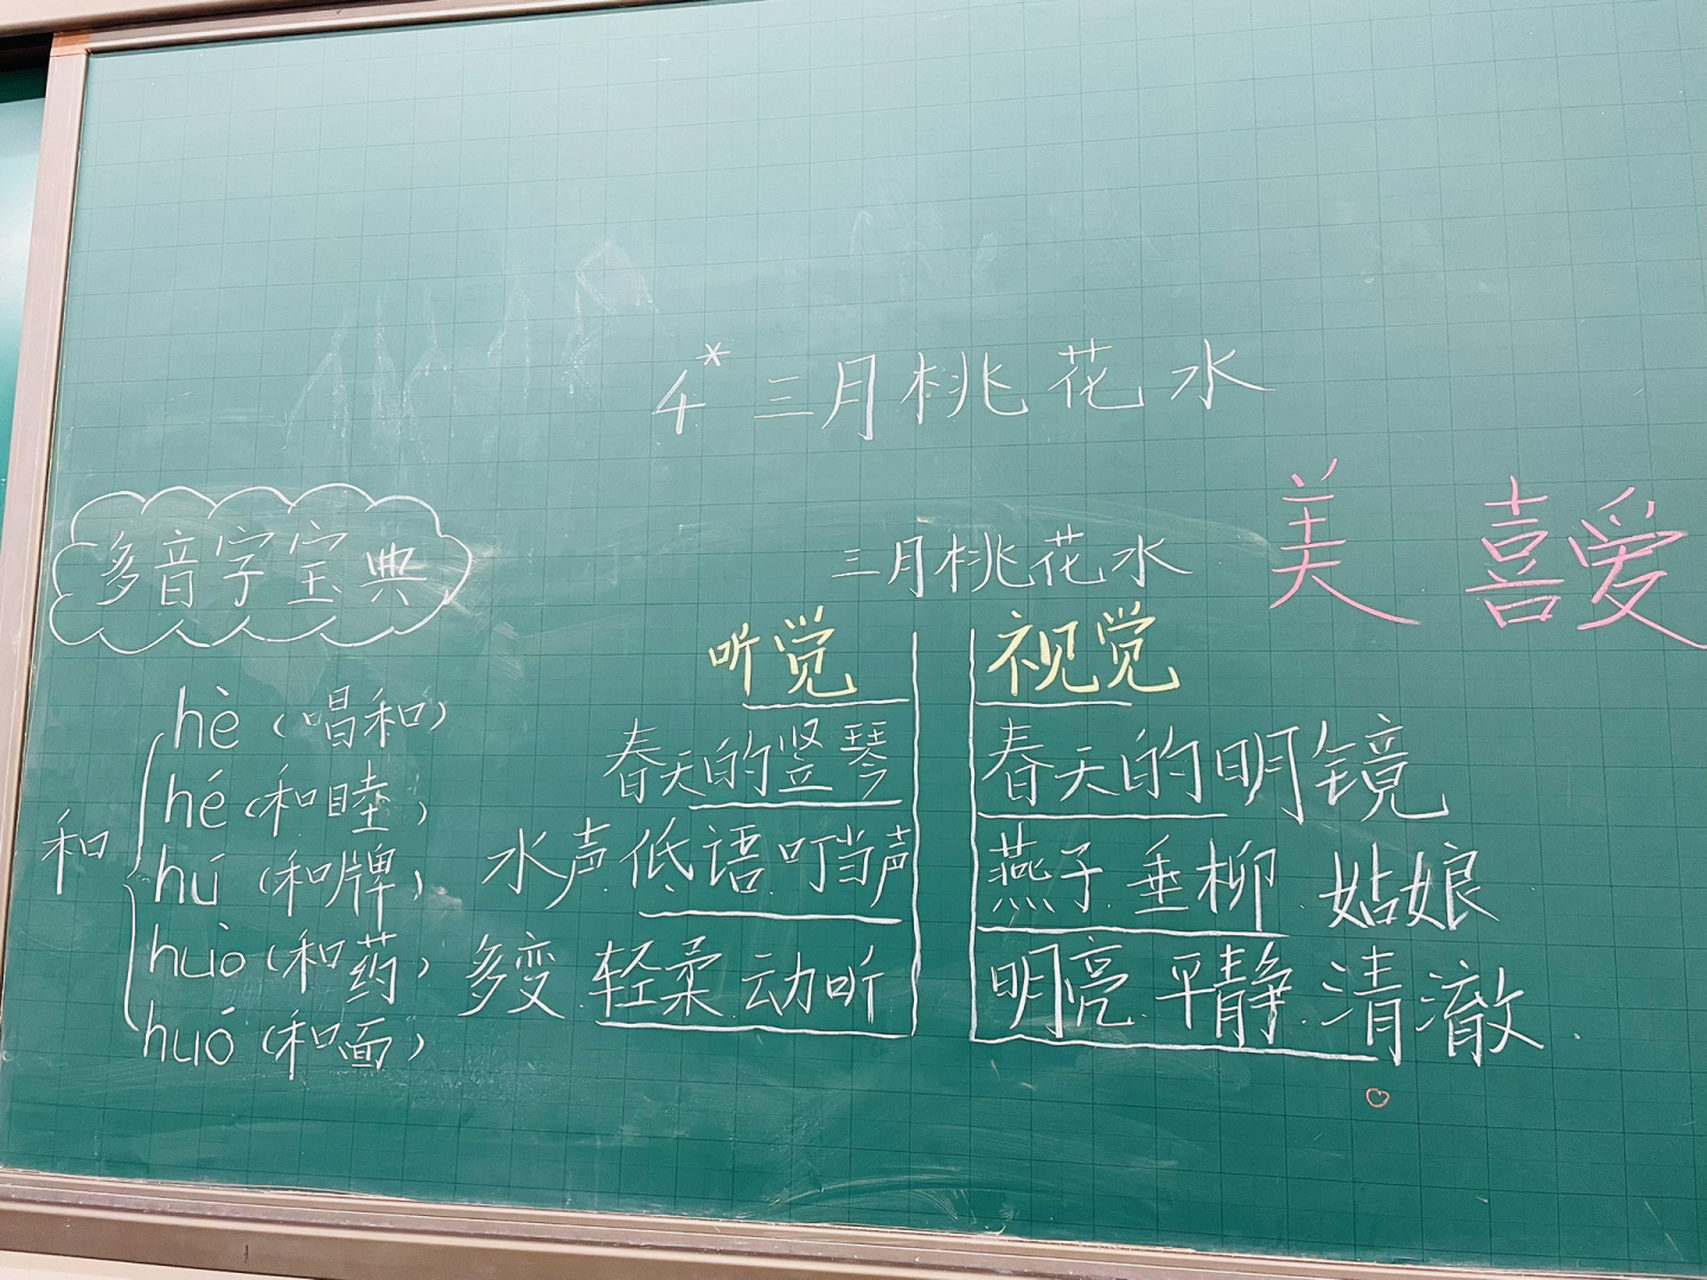 4* 三月桃花水
美 喜爱
多音字宝典
三月桃花水
听觉 视觉
和
hè（唱和）
hé（和睦）
hú（和牌）
huò（和药）
huó（和面）
春天的竖琴
水声.低语.叮当声
多变.轻柔.动听
春天的明镜
燕子.垂柳.姑娘
明亮.平静.清澈.